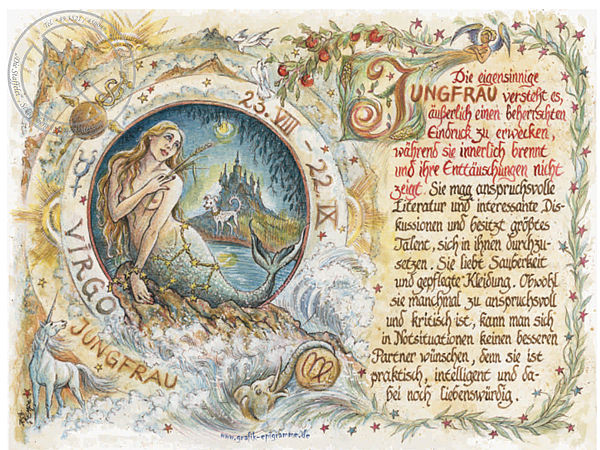 23.VIII - 22.IX
VIRGO
JUNGFRAU
Die eigensinnige
JUNGFRAU versteht es,
äußerlich einen beherrschten
Eindruck zu erwecken,
während sie innerlich brennt
und ihre Enttäuschungen nicht
zeigt. Sie mag anspruchsvolle
Literatur und interessante Dis-
kussionen und besitzt größtes
Talent, sich in ihnen durchzu-
setzen. Sie liebt Sauberkeit
und gepflegte Kleidung. Obwohl
sie manchmal zu anspruchsvoll
und kritisch ist, kann man sich
in Notsituationen keinen besseren
Partner wünschen, denn sie ist
praktisch, intelligent und da-
bei noch liebenswürdig.
www.grafik-epigramme.de